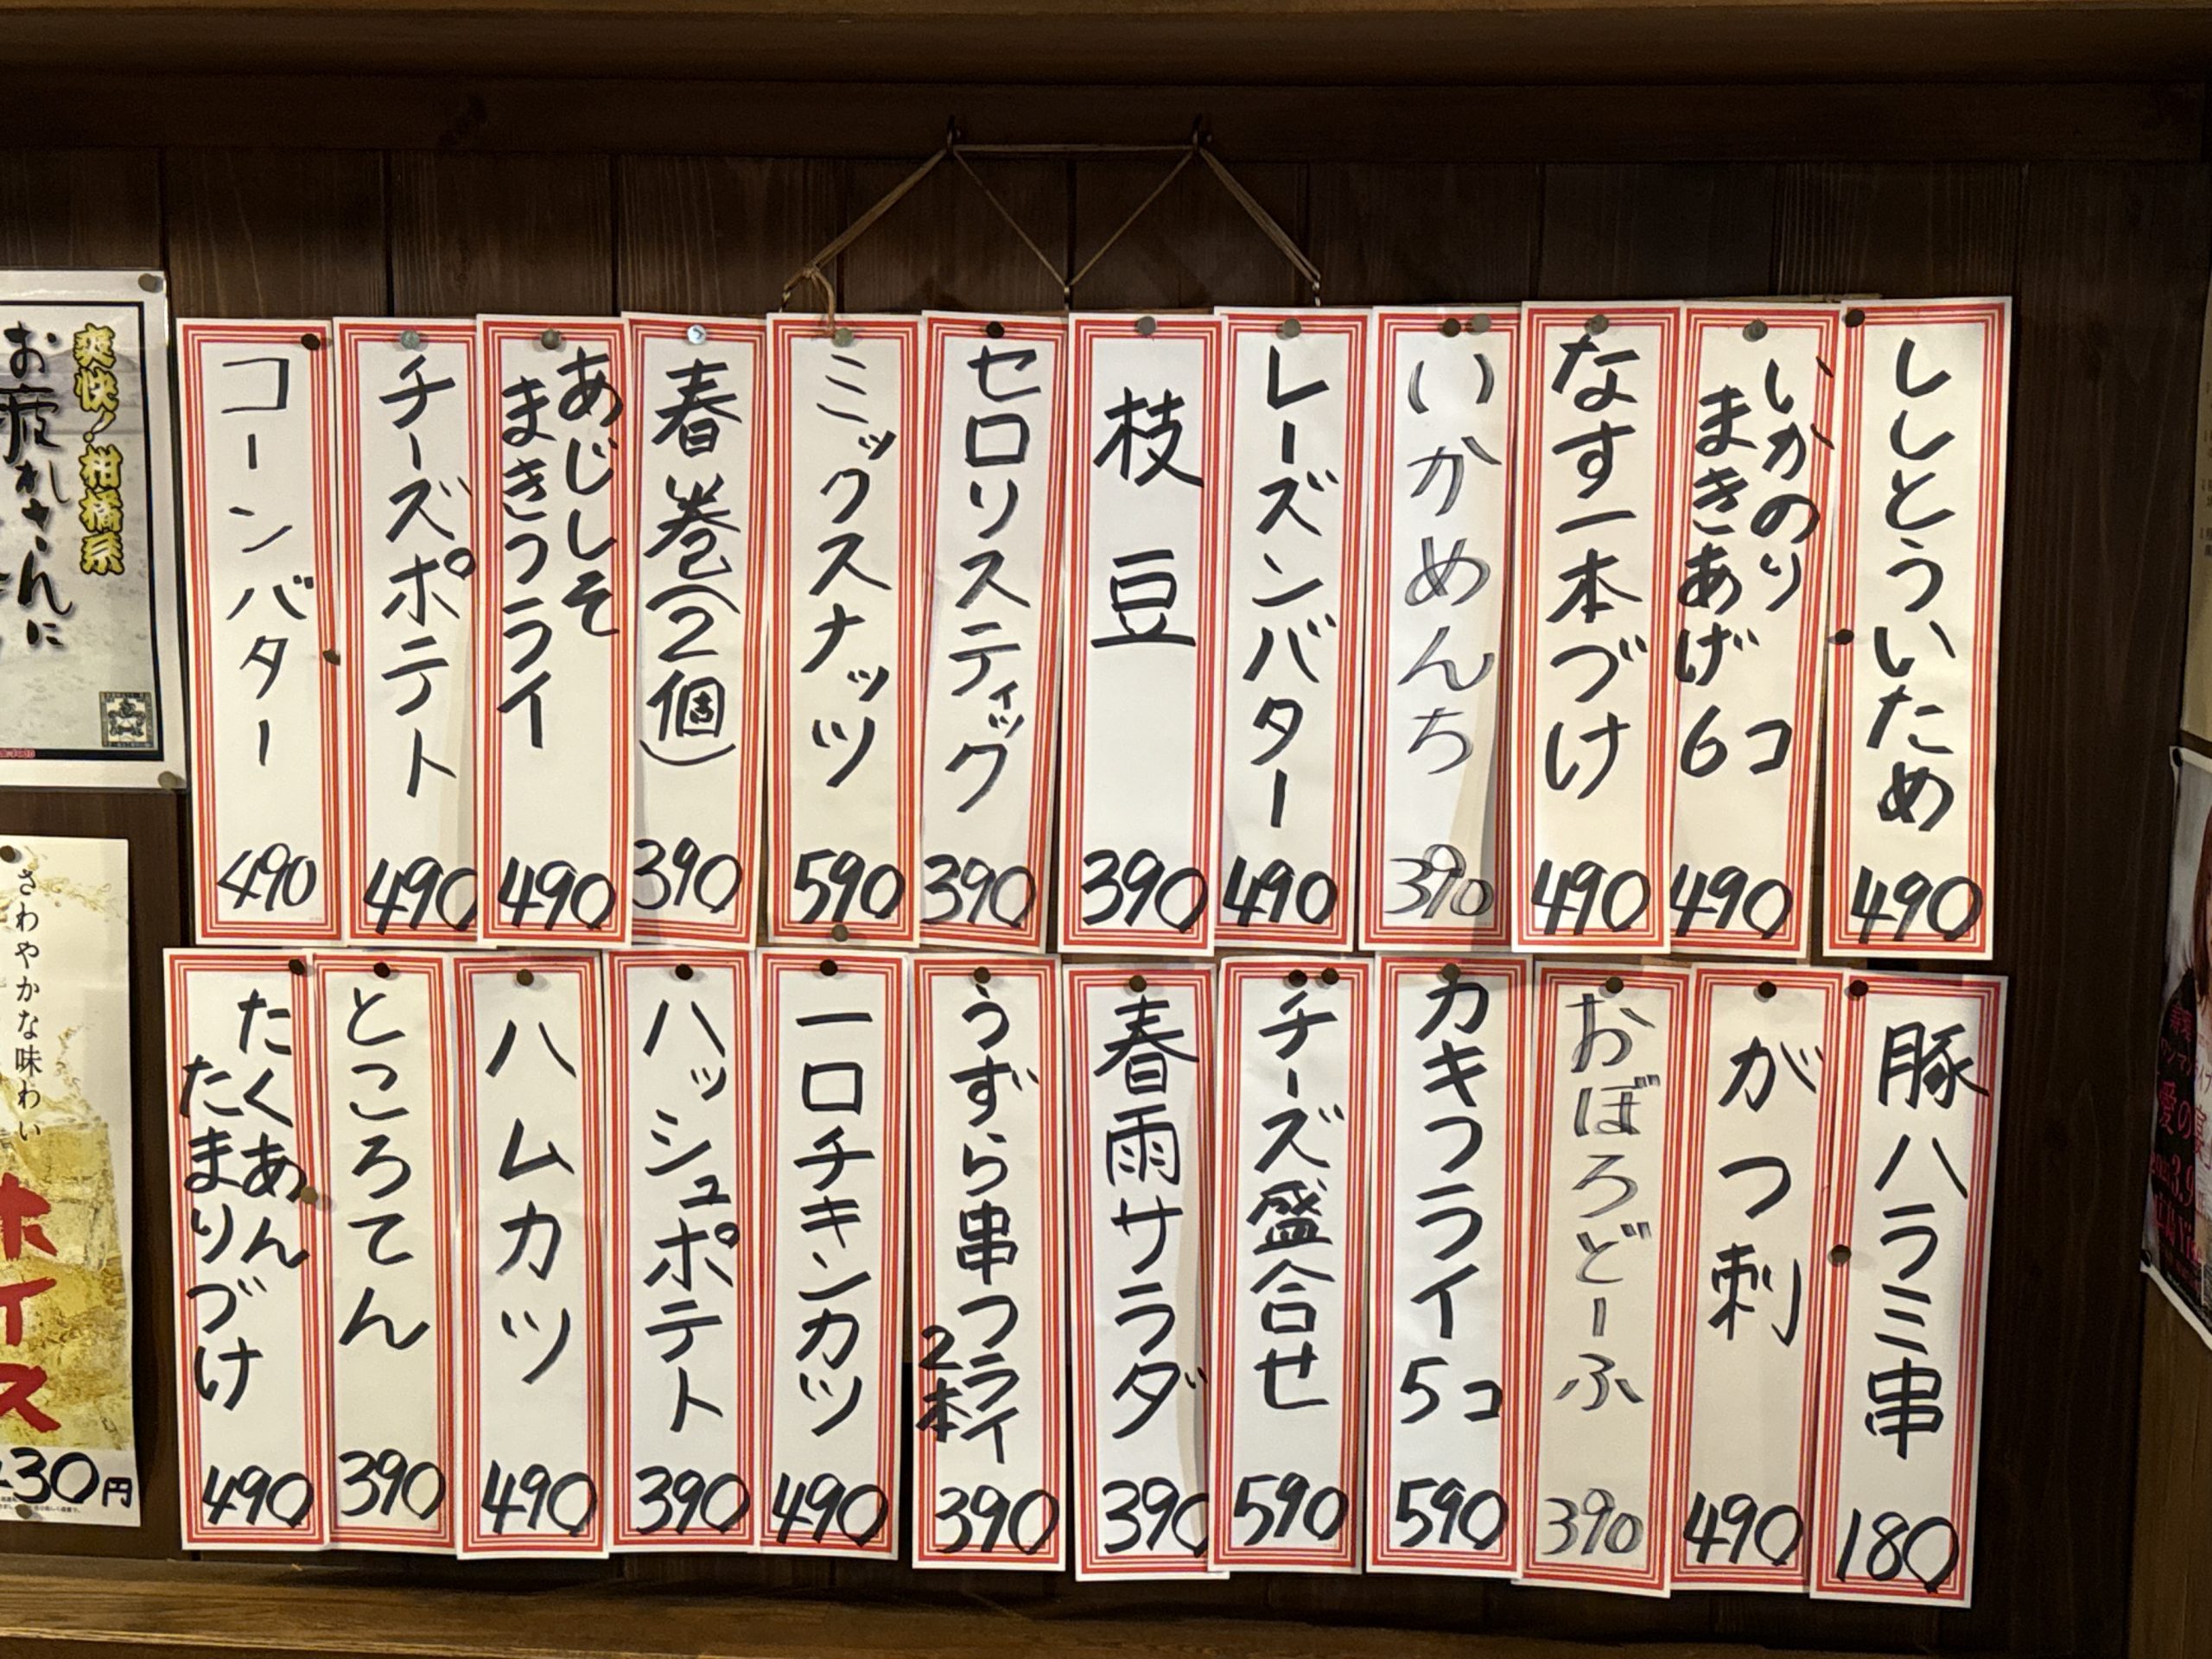 ししとういため
490
いかのり
まきあげ6コ
490
なす一本づけ
490
いかめんち
390
レーズンバター
490
枝豆
390
セロリスティック
390
ミックスナッツ
590
春巻(2個)
390
あじしそ
まきフライ
490
チーズポテト
490
コーンバター
490
豚ハラミ串
180
がつ刺
490
おぼろどーふ
390
カキフライ5コ
590
チーズ盛合せ
590
春雨サラダ
390
うずら串フライ
2本
390
一口チキンカツ
490
ハッシュポテト
390
ハムカツ
490
ところてん
390
たくあん
たまりづけ
490
爽快!柑橘系
お疲れさんに
さわやかな味わい
ホイス
430円